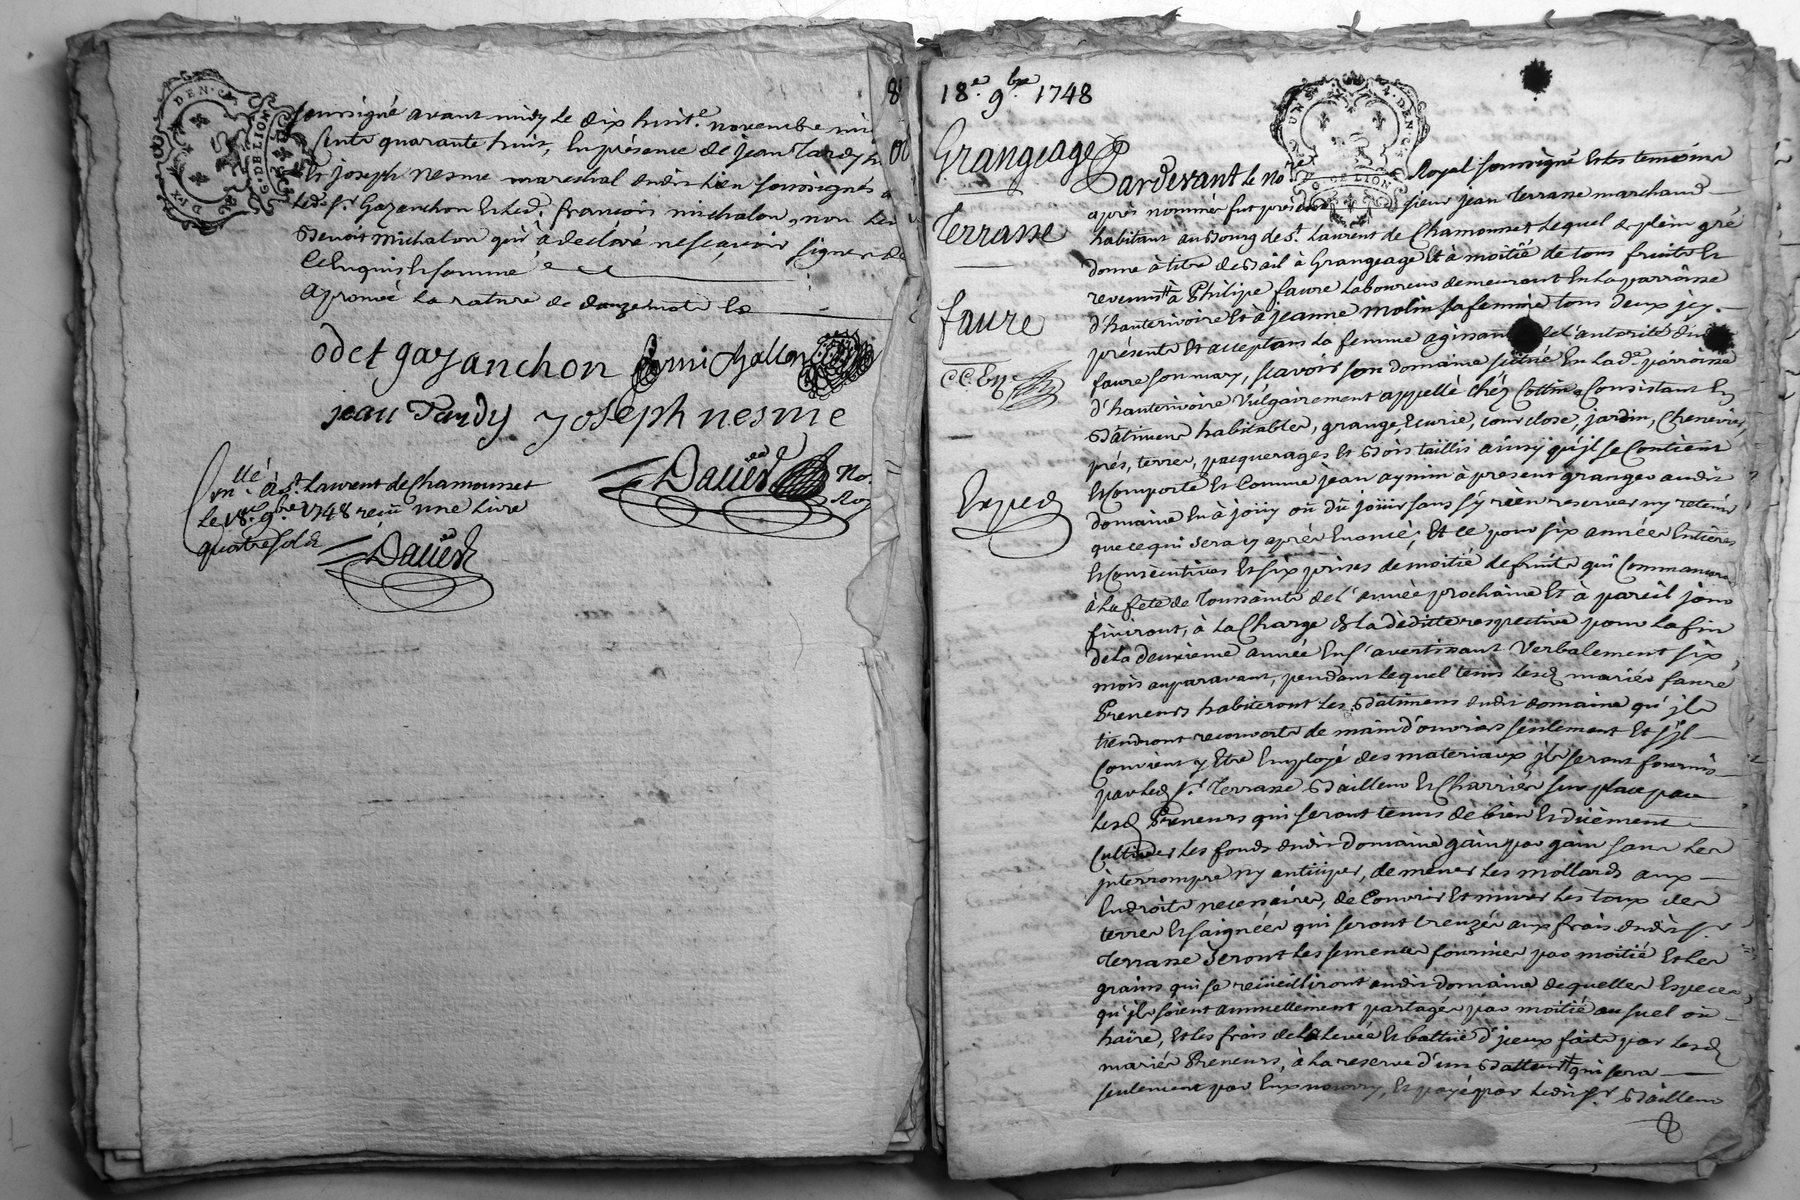 soussigné avant midy le dix huit.e novembre mil
cents quarante huit, En présence de jean Tardy
Et joseph nesme mareschal dudit lieu soussignés
led. s.r Gazanchon Et led. françois michalon, non led
Benoit michalon qui a declaré ne sçavoir signer de
ce Enquis Et sommé
aprouvé la rature de mots
odet gazanchon
jean Tardy joseph nesme
Daüed
No.
Roy
llé à s.t Laurent de Chamousset
le 18. 9.bre 1748 receu une Livre
quatre sols
Daüed
18.e 9.bre 1748
Grangeage
Terrasse
faure
Exped
Pardevant le No.re Royal soussigné Et les temoins
après nommés fut présent sieur jean Terrasse marchand
habitant au Bourg de s.t Laurent de Chamousset Lequel de plein gré
donne à titre de Bail à Grangeage Et à moitié de tous fruits Et
revenus à Philipe faure Laboureur demeurant En La parroisse
d'hauterivoire Et à jeanne molin sa femme tous deux jcy
présents Et acceptans La femme agissant de L'autorité dud
faure son mary, sçavoir son domaine scitué En Lad.e parroisse
d'hauterivoire Vulgairement appellé Chés Cottin Consistant En
Bâtimens habitables, grange, Ecurie, cour close, jardin, Chenevier,
prés, terres, pacquerages Et Bois taillis ainsy qu'jl se Contient
Et Comporte Et Comme jean aymin à présent granger audit
domaine En à joüy ou dû joüir sans s'y rien reserver ny retenir
que ce qui sera cy après Enoncé; Et ce pour six années Entières
Et Consécutives Et six prises de moitié de fruits qui Commanceront
à La fete de Toussaints de L'année prochaine Et à pareil jour
finiront, à La Charge de La dèditte respective pour La fin
de La deuxieme année En s'avertissant Verbalement six
mois auparavant, pendant Lequel tems Lesd mariés faure
Preneurs habiteront Les Bâtimens dudit domaine qu'jls
tiendront recouverts de main d'ouvrier seulement Et s'jl
Convient y Etre Employé des materiaux jls seront fournis
par Led s.r Terrasse Bailleur Et Charriés sur place par
Lesd Preneurs qui seront tenus de bien Et düement
Cultiver Les fonds dudit domaine gain par gain sans Les
jnterrompre ny anticiper, de mener Les mollards aux
Endroits necessaires, de Couvrir Et murer Les toux des
terres Et saignées qui seront Creuzés aux frais dudit s.r
Terrasse seront Les semences fournies par moitié Et Les
grains qui se reciieilliront audit domaine de quelles Especes
qu'jls soient annuellement partagés par moitié au suel ou
haire, Et Les frais de La Levée Et battüe d'jceux faits par Lesd
mariés Preneurs, à La reserve d'un Batteur qui sera
seulement par Eux nourry, Et payé par Ledit s.r Bailleur